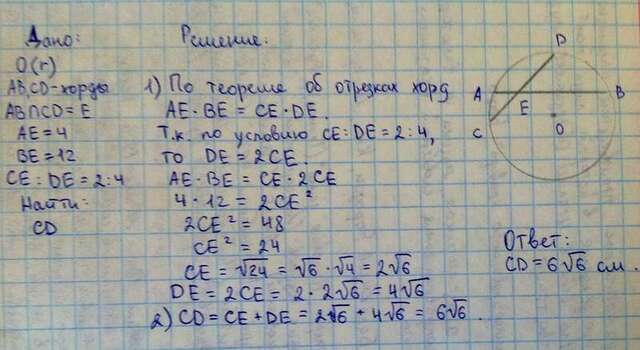 Дано:
O(r)
AB,CD-хорды
AB∩CD=E
AE=4
BE=12
CE:DE=2:4
Найти:
CD
Решение:
1) По теореме об отрезках хорд
AE·BE=CE·DE.
Т.к. по условию CE:DE=2:4,
то DE=2CE.
AE·BE=CE·2CE
4·12=2CE²
2CE²=48
CE²=24
CE=√24=√6·√4=2√6
DE=2CE=2·2√6=4√6
2) CD=CE+DE=2√6+4√6=6√6.
D
A
B
E
C
O
Ответ:
CD=6√6 см.